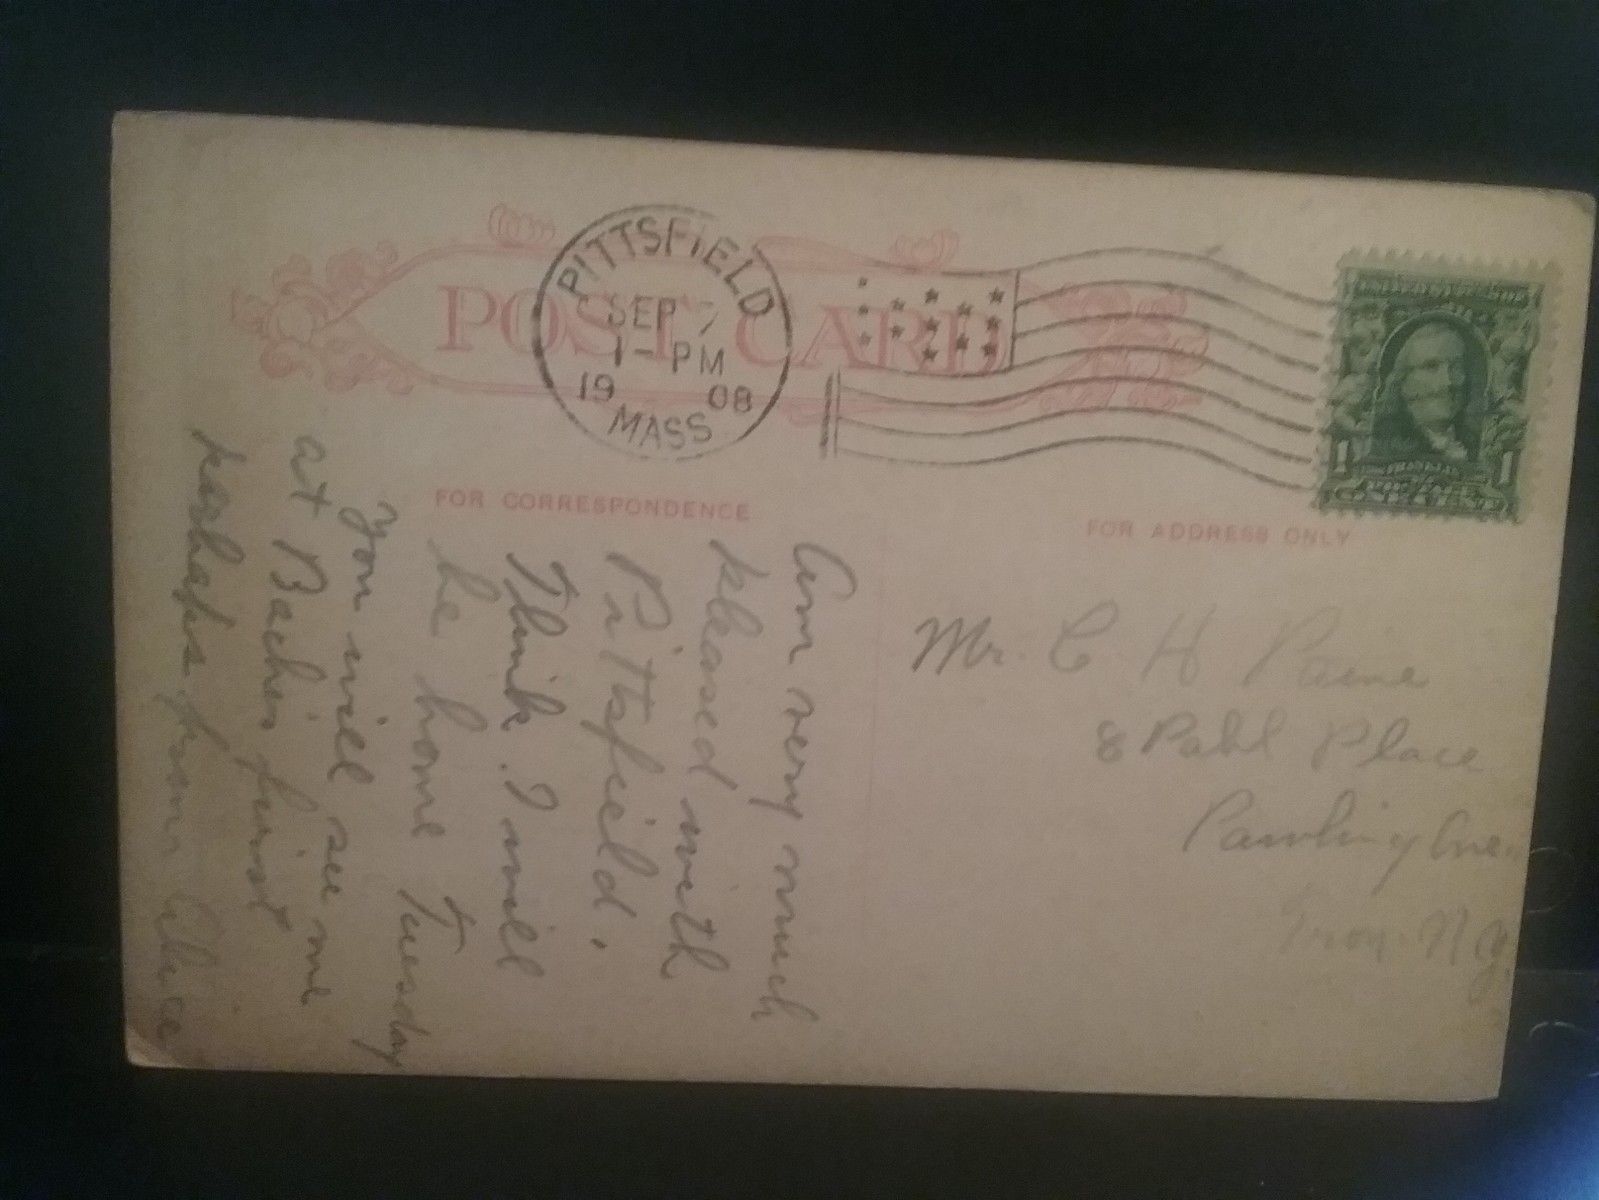 POST CARD
PITTSFIELD
SEP 7
1-PM
1908
MASS
1 1
FOR CORRESPONDENCE
FOR ADDRESS ONLY
Am very much
pleased with
Pittsfield.
Think I will
be home Tuesday
You will see me
at first
perhaps from Alice
Mr. C H Paine
8 Pahl Place
Pawling Ave.
Troy. N Y